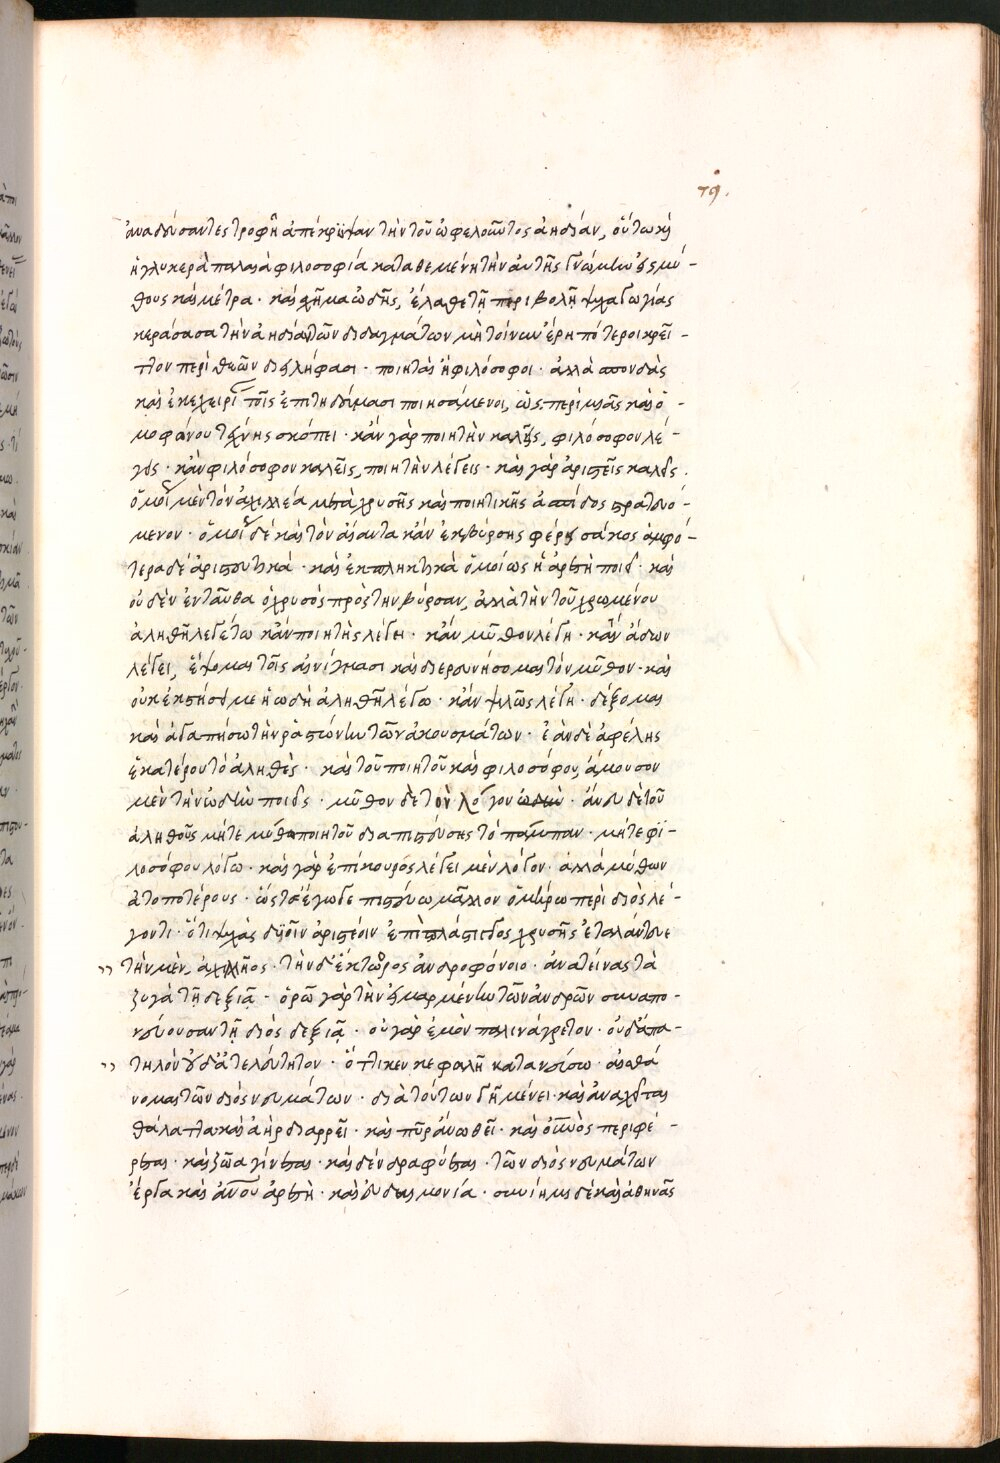 79.
ἀναδεύσαντες τροφῇ ἀπέκρυψαν τὴν τοῦ ὠφελοῦντος ἀηδίαν, οὕτω καὶ
ἡ γλυκερὰ παλαιὰ φιλοσοφία καταθεμένη τὴν αὑτῆς γνώμην εἰς μύ-
θους καὶ μέτρα· καὶ σχῆμα ᾠδῆς, ἔλαθε τῇ περιβολῇ ψυχαγωγίας
κεράσασα τὴν ἀηδίαν τῶν διδαγμάτων μὴ τοίνυν ἔρη πότεροι κρεῖ-
ττον περὶ θεῶν διειλήφασι· ποιηταὶ ἢ φιλόσοφοι· ἀλλὰ σπονδὰς
καὶ ἐκεχειρί τοῖς ἐπιτηδεύμασι ποιησάμενοι, ὡς περὶ μιᾶς καὶ ὁ-
μοφώνου τέχνης σκόπει· κἂν γὰρ ποιητὴν καλῇς, φιλόσοφον λέ-
γεις· κἂν φιλόσοφον καλεῖς, ποιητὴν λέγεις· καὶ γὰρ ἀριστεῖς καλεῖς.
ὁμοί μὲν τὸν ἀχιλλέα μετὰ χρυσῆς καὶ ποιητικῆς ἀσπίδος στρατευό-
μενον· ὁμοί δὲ καὶ τὸν αἴαντα κἂν ἐκ βύρσης φέρῃ σάκος ἀμφό-
τερα δὲ ἀριστευτικὰ· καὶ ἐκπληκτικὰ ὁμοίως ἡ ἀρετὴ ποιεῖ· καὶ
οὐδὲν ἐνταῦθα ὁ χρυσὸς πρὸς τὴν βύρσαν, ἀλλὰ τὴν τοῦ χρωμένου
ἀληθῆ λεγέτω κἂν ποιητὴς λέγει· κἂν μῦθον λέγῃ· κἂν ἄδων
λέγει, ἕψομαι τοῖς αἰνίγμασι καὶ διερευνήσομαι τὸν μῦθον· καὶ
οὐκ ἐκστήσει με ἡ ᾠδὴ ἀληθῆ λέγω· κἂν ψιλῶς λέγῃ· δέξομαι
καὶ ἀγαπήσω τὴν ῥαστώνην τῶν ἀκουσμάτων· ἐὰν δὲ ἀφέλῃς
ἑκατέρου τὸ ἀληθὲς· καὶ τοῦ ποιητοῦ καὶ φιλοσόφου, ἄμουσον
μὲν τὴν ᾠδὴν ποιεῖς· μῦθον δὲ τὸν λόγον· ἄνευ δὲ τοῦ
ἀληθοῦς μήτε μύθῳ ποιητοῦ διαπιστεύσῃς τὸ πάμπαν· μήτε φι-
λοσόφου λόγῳ· καὶ γὰρ ἐπίκουρος λέγει μὲν λόγον· ἀλλὰ μύθων
ἀτοποτέρους· ὥστ' ἔγωγε πιστεύω μᾶλλον ὁμήρῳ περὶ διὸς λέ-
γοντι· ὅτι ψυχὰς δυοῖν ἀριστέοιν ἐπὶ πλάστιγγος χρυσῆς ἐταλάντευε
τὴν μὲν, ἀχιλλῆος· τὴν δ' ἕκτορος ἀνδροφόνοιο· ἀνατείνας τὰ
ζυγὰ τῇ δεξιᾷ· ὁρῶ γὰρ τὴν εἱμαρμένην τῶν ἀνδρῶν συναπο-
νεύουσαν τῇ διὸς δεξιᾷ· οὐ γὰρ ἐμὸν παλινάγρετον· οὐδ' ἀπα-
τηλὸν οὐδ' ἀτελεύτητον· ὅττι κεν κεφαλῇ κατανεύσω· αἰσθά
νομαι τῶν διὸς νευμάτων· διὰ τούτων γῆ μένει· καὶ ἀναχεῖται
θάλαττα καὶ ἀὴρ διαρρεῖ· καὶ πῦρ ἄνω θεῖ· καὶ οὐνὸς περιφέ-
ρεται· καὶ ζῶα γίνεται· καὶ δένδρα φύεται· τῶν διὸς νευμάτων
ἔργα καὶ ἀνου ἀρετὴ· καὶ εὐδαιμονία· συνίημι δὲ καὶ ἀθηνᾶς